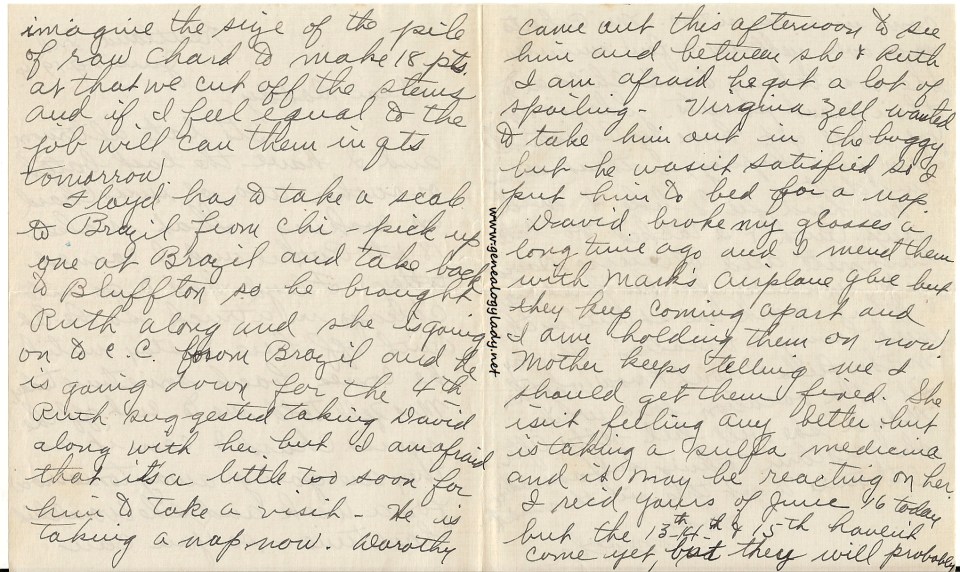 imagine the size of the pile
of raw chard to make 18 pts.
at that we cut off the stems
and if I feel equal to the
job will can them in qts
tomorrow.
Floyd has to take a scab
to Brazil from Chi - pick up
one at Brazil and take back
to Bluffton so he brought
Ruth along and she is going
on to C.C. from Brazil and he
is going down for the 4th
Ruth suggested taking David
along with her but I am afraid
that it's a little too soon for
him to take a visit - He is
taking a nap now. Dorothy
came out this afternoon to see
him and between she & Ruth
I am afraid he got a lot of
spoiling - Virginia Zell wanted
to take him out in the buggy
but he wasn't satisfied so I
put him to bed for a nap
David broke my glasses a
long time ago and I mend them
with Mark's airplane glue but
they keep coming apart and
I am holding them on now
Mother keeps telling me I
should get them fixed. She
isn't feeling any better but
is taking a sulfa medicine
and it may be reacting on her.
I recd yours of June 16 today
but the 13th - 14th & 15th haven't
come yet, but they will probably
www.genealogylady.net